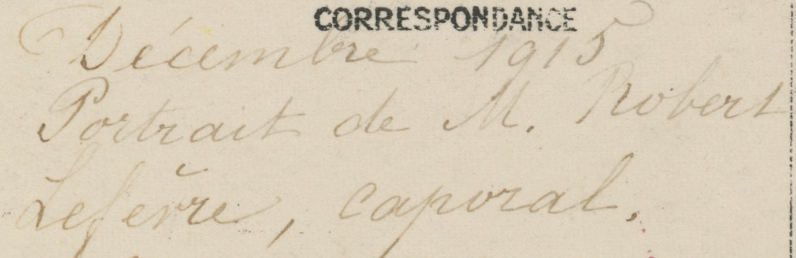 CORRESPONDANCE
Décembre 1915
Portrait de M. Robert
Lefèvre, caporal.